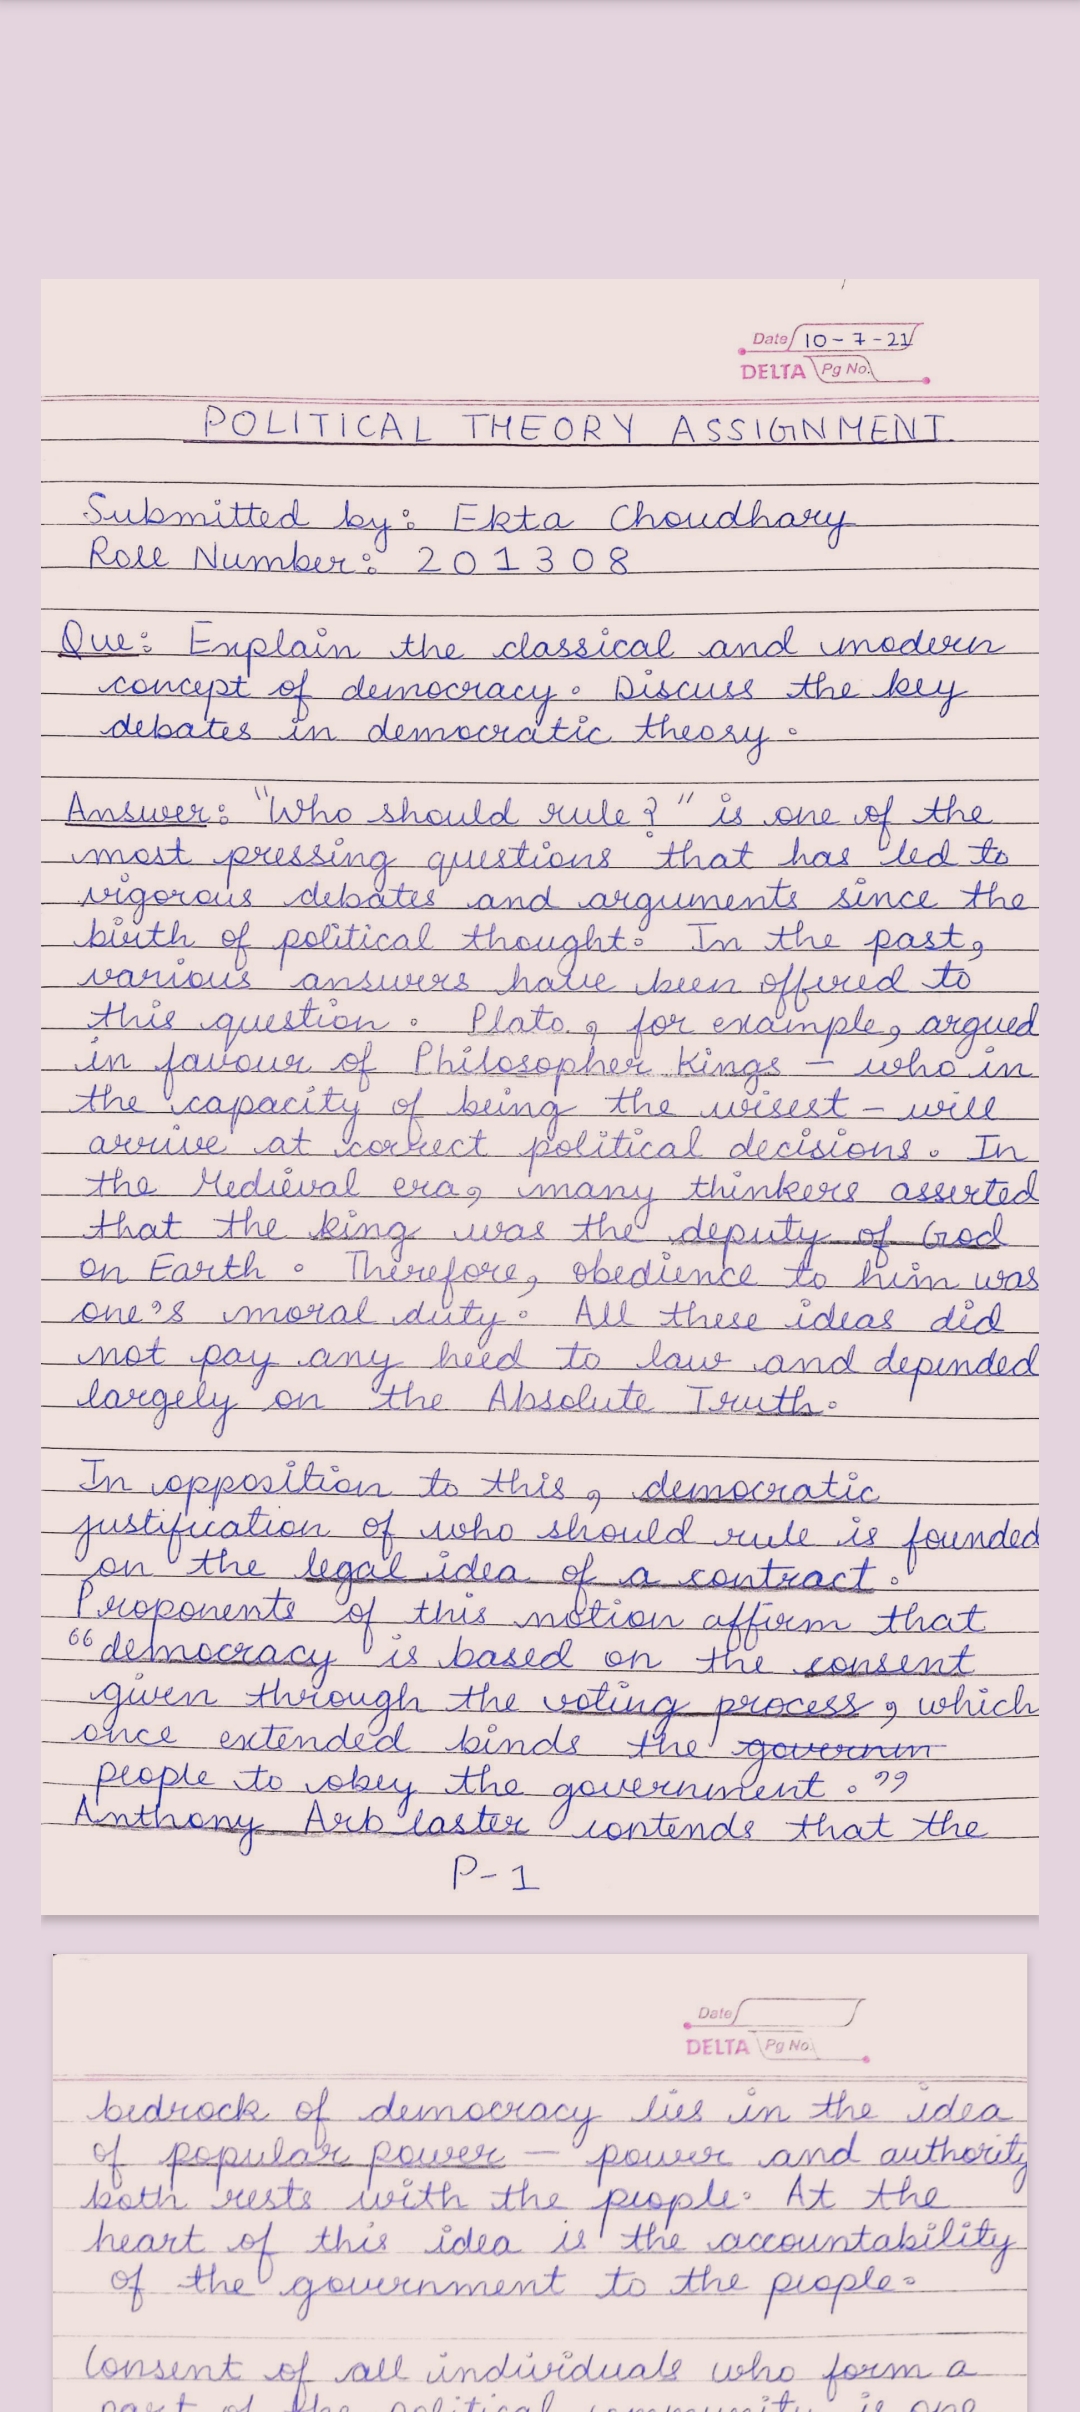 Date 10-7-21
DELTA Pg No.
POLITICAL THEORY ASSIGNMENT
Submitted by: Ekta Choudhary
Roll Number: 201308
Que: Explain the classical and modern
concept of democracy. Discuss the key
debates in democratic theory.
Answer: "Who should rule?" is one of the
most pressing questions that has led to
vigorous debates and arguments since the
birth of political thought. In the past,
various answers have been offered to
this question. Plato, for example, argued
in favour of Philosopher Kings – who in
the capacity of being the wisest – will
arrive at correct political decisions. In
the Medieval era, many thinkers asserted
that the king was the deputy of God
on Earth. Therefore, obedience to him was
one's moral duty. All these ideas did
not pay any heed to law and depended
largely on the Absolute Truth.
In opposition to this, democratic
justification of who should rule is founded
on the legal idea of a contract.
Proponents of this notion affirm that
"democracy is based on the consent
given through the voting process, which
once extended binds the governin
people to obey the government."
Anthony Arblaster contends that the
P-1
Date
DELTA Pg No.
bedrock of democracy lies in the idea
of popular power – power and authority
both rests with the people. At the
heart of this idea is the accountability
of the government to the people.
Consent of all individuals who form a
part of the political community is one